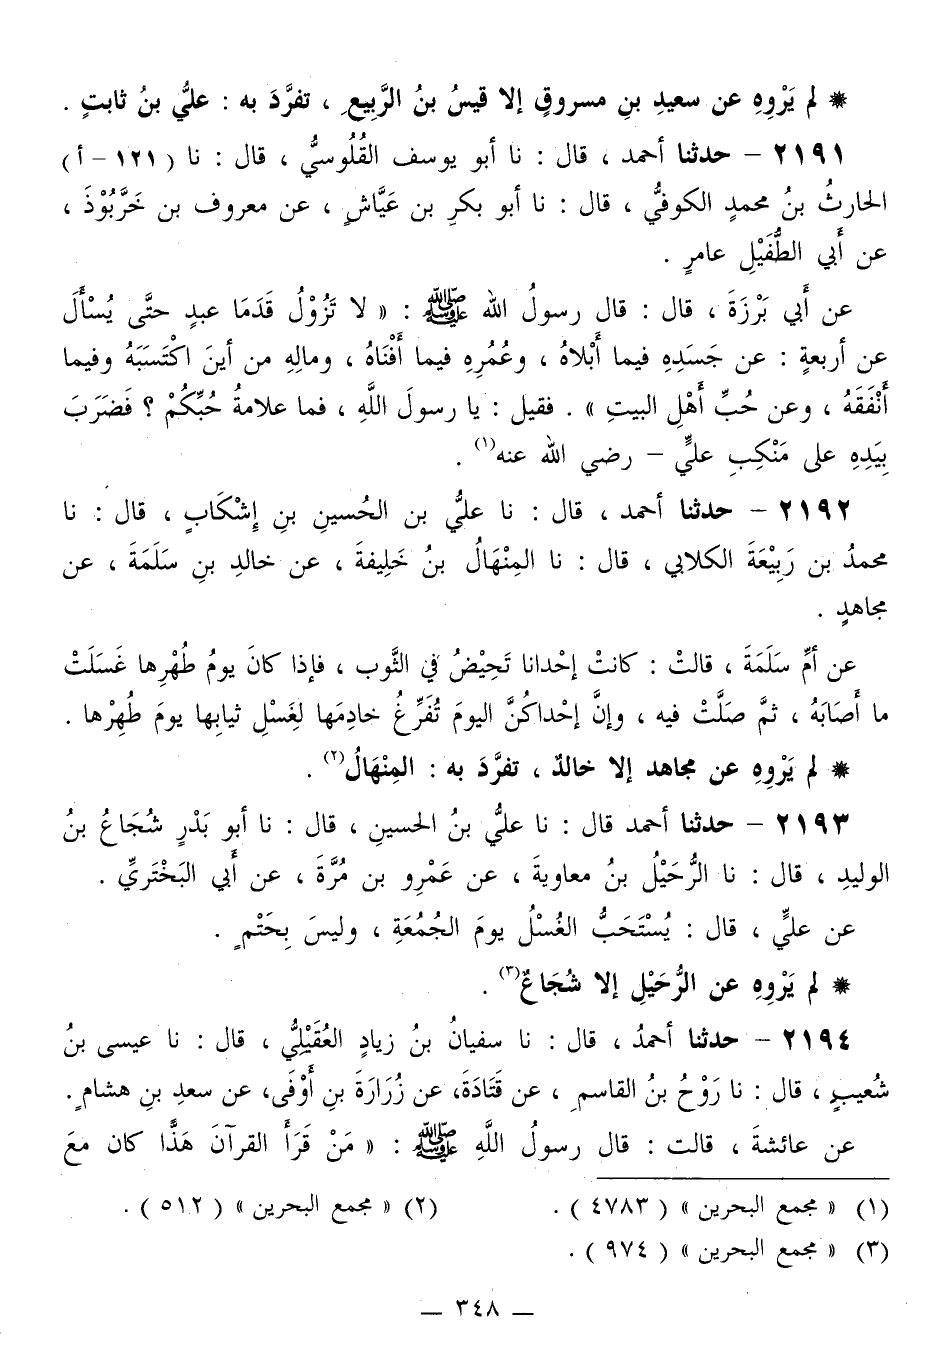 * لم يَرْوِهِ عن سعيدِ بنِ مسروقٍ إلا قيسُ بنُ الرَّبيعِ ، تفرَّدَ به : عليُّ بنُ ثابتٍ .
٢١٩١ - حدثنا أحمد ، قال : نا أبو يوسف القُلُوسيُّ ، قال : نا (١٢١ - أ)
الحارثُ بنُ محمدٍ الكوفيُّ ، قال : نا أبو بكرِ بن عَيَّاشٍ ، عن معروف بن خَرَّبُوْذَ ،
عن أَبي الطُّفَيْلِ عامرٍ .
عن أَبي بَرْزَةَ ، قال : قال رسولُ الله ﷺ : « لا تَزُوْلُ قَدَمَا عبدٍ حتَّى يُسْأَلَ
عن أربعةٍ : عن جَسَدِهِ فيما أَبْلاهُ ، وعُمُرِهِ فيما أَفْنَاهُ ، ومالِهِ من أينَ اكْتَسَبَهُ وفيما
أَنْفَقَهُ ، وعن حُبِّ أَهْلِ البيتِ » . فقيل : يا رسولَ اللَّهِ ، فما علامةُ حُبِّكُمْ ؟ فَضَرَبَ
بِيَدِهِ على مَنْكِبِ عليٍّ - رضي الله عنه(١) .
٢١٩٢ - حدثنا أحمد ، قال : نا عليُّ بن الحُسينِ بنِ إِشْكَابٍ ، قال : نا
محمدُ بن رَبِيْعَةَ الكلابي ، قال : نا المِنْهَالُ بنُ خَلِيفةَ ، عن خالدِ بنِ سَلَمَةَ ، عن
مجاهدٍ .
عن أمِّ سَلَمَةَ ، قالتْ : كانتْ إحْدانا تَحِيْضُ في الثَّوب ، فإذا كانَ يومُ طُهْرِها غَسَلَتْ
ما أَصَابَهُ ، ثمَّ صَلَّتْ فيه ، وإنَّ إحْداكُنَّ اليومَ تُفَرِّغُ خادِمَها لِغَسْلِ ثيابِها يومَ طُهِرْها .
* لم يَرْوِهِ عن مجاهد إلا خالدٌ ، تفرَّدَ به : المِنْهَالُ(٢) .
٢١٩٣ - حدثنا أحمد قال : نا عليُّ بنُ الحسينِ ، قال : نا أبو بَدْرٍ شُجَاعُ بنُ
الوليدِ ، قال : نا الرُّحَيْلُ بنُ معاويةَ ، عن عَمْرِو بن مُرَّةَ ، عن أَبي البَخْتَريِّ .
عن عليٍّ ، قال : يُسْتَحَبُّ الغُسْلُ يومَ الجُمُعَةِ ، وليسَ بِحَتْمٍ .
* لم يَرْوِهِ عن الرُّحَيْلِ إلا شُجَاعٌ(٣) .
٢١٩٤ - حدثنا أحمدُ ، قال : نا سفيانُ بنُ زيادٍ العُقَيْلِيُّ ، قال : نا عيسى بنُ
شُعيبٍ ، قال : نا رَوْحُ بنُ القاسمِ ، عن قَتَادَةَ، عن زُرَارَةَ بنِ أَوْفَى، عن سعدِ بنِ هشامٍ.
عن عائشةَ ، قالت : قال رسولُ اللَّهِ ﷺ : « مَنْ قَرَأَ القرآنَ هَذًّا كان مَعَ
(١) « مجمع البحرين » (٤٧٨٣) .
(٢) « مجمع البحرين » (٥١٢) .
(٣) « مجمع البحرين » (٩٧٤) .
- ٣٤٨ -